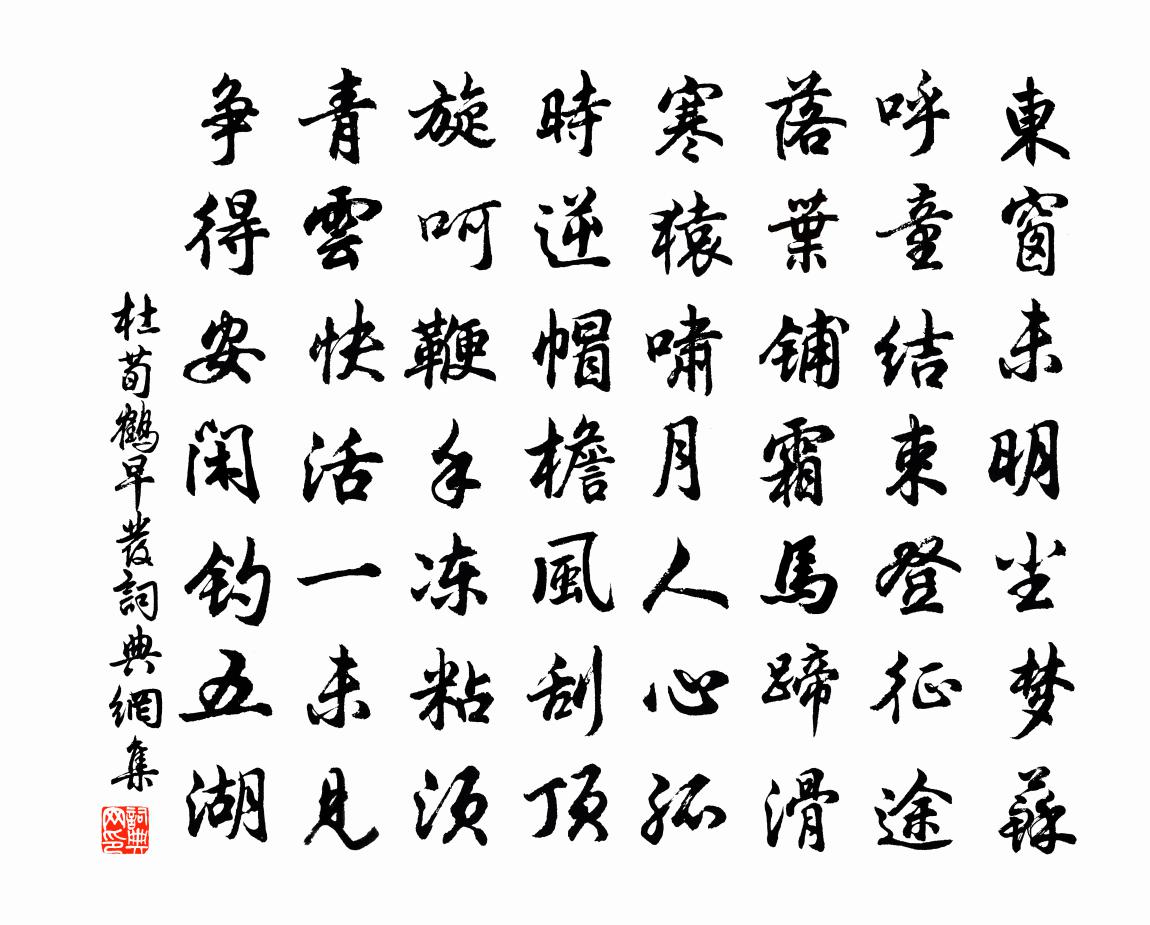 東窗未明尘梦蘇
呼童结束登征途
落葉铺霜馬蹄滑
寒猿啸月人心孤
時逆帽檐風刮顶
旋呵鞭手冻粘须
青雲快活一未見
争得安闲钓五湖
杜荀鶴早發詞典網集
詞典网印